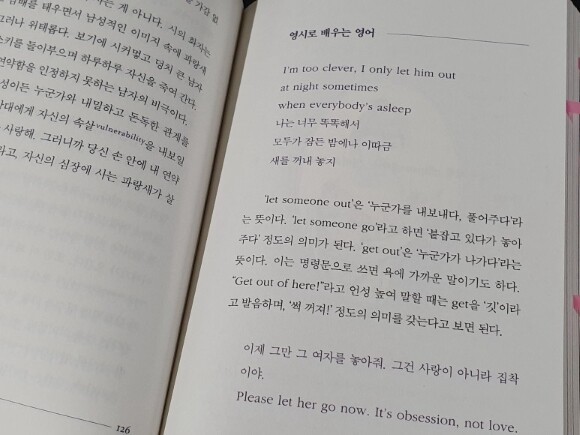 는 게 아니다. 시의 화자는
태우면서 남성적인 이미지 속에 파랑새
그러나 위태롭다. 보기에 시커멓고 덩치 큰 남자
스키를 들이부으며 하루하루 자신을 죽여 간다.
연약함을 인정하지 못하는 남자의 비극이다.
성이든 누군가와 내밀하고 돈독한 관계를
상대에게 자신의 속살vulnerability을 내보일
사랑해, 그러니까 당신 손 안에 내 연약
라고, 자신의 심장에 사는 파랑새가 살
126
영시로 배우는 영어
I'm too clever, I only let him out
at night sometimes
when everybody's asleep
나는 너무 똑똑해서
모두가 잠든 밤에나 이따금
새를 꺼내 놓지
'let someone out'은 '누군가를 내보내다, 풀어주다'라
는 뜻이다. 'let someone go'라고 하면 '붙잡고 있다가 놓아
주다' 정도의 의미가 된다. 'get out'은 '누군가가 나가다'라는
뜻이다. 이는 명령문으로 쓰면 욕에 가까운 말이기도 하다.
"Get out of here!"라고 언성 높여 말할 때는 get을 '깃'이라
고 발음하며, '썩 꺼져!' 정도의 의미를 갖는다고 보면 된다.
이제 그만 그 여자를 놓아줘. 그건 사랑이 아니라 집착
이야.
Please let her go now. It's obsession, not love.